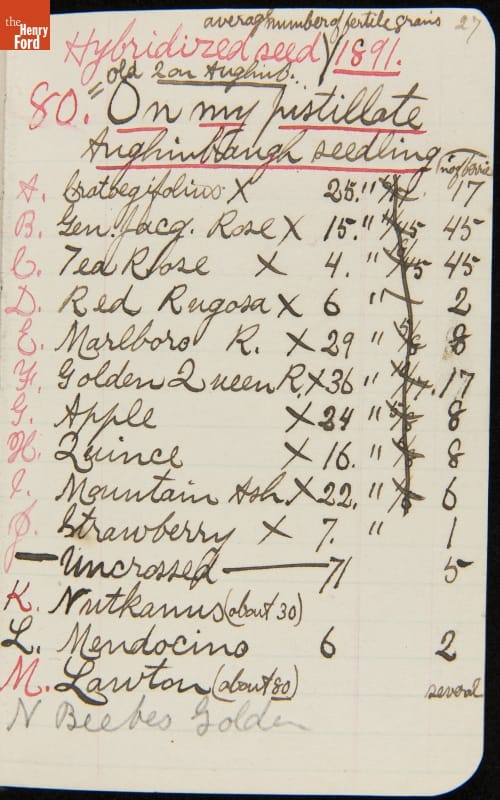 the Henry Ford
average number of fertile grains 27
Hybridized seed / 1891.
" old 2 on Aughinb.
80. On my pistillate
Aughinbaugh seedling
no. of berries
A. Crataegifolius X 25. " 17
B. Gen. Jacq. Rose X 15. " 45
C. Tea Rose X 4. " 45
D. Red Rugosa X 6 " 2
E. Marlboro R. X 29 " 8
F. Golden Queen R. X 36 " 17
G. Apple X 24 " 8
H. Quince X 16. " 8
I. Mountain Ash X 22. " 6
J. Strawberry X 7. " 1
— Uncrossed — 71 5
K. Nutkanus (about 30)
L. Mendocino 6 2
M. Lawton (about 80) several
N Beebes Golden